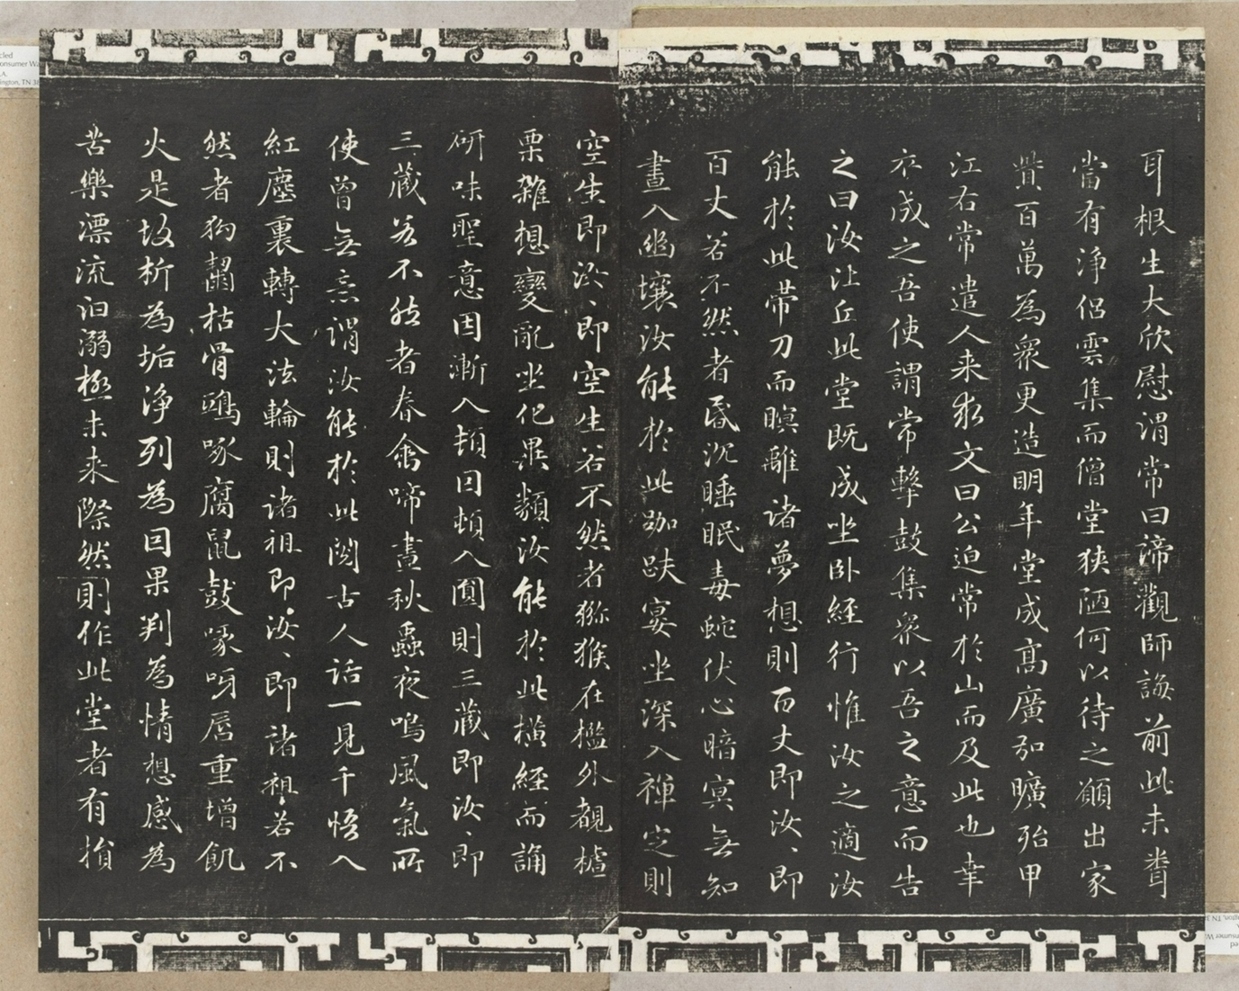 耳根生大欣慰謂常曰諦觀師誨前此未聞
當有淨侶雲集而僧堂狹陋何以待之願出家
貲百萬為衆更造明年堂成高廣加曠殆甲
江右常遣人来求文曰公迫常於山而及此也幸
卒成之吾使謂常擊鼓集衆以吾之意而告
之曰汝比丘此堂既成坐卧経行惟汝之適汝
能於此帶刀而瞑離諸夢想則百丈即汝、即
百丈若不然者昏沉睡眠毒蛇伏心暗冥無知
晝入幽壤汝能於此跏趺宴坐深入禪定則
空生即汝、即空生若不然者獼猴在檻外覩樝
栗雜想變亂坐化異類汝能於此橫經而誦
研味聖意因漸入頓因頓入圓則三藏即汝、即
三藏若不然者春禽啼晝秋蟲夜鳴風氣所
使曾無意謂汝能於此閱古人話一見千悟入
紅塵裏轉大法輪則諸祖即汝、即諸祖若不
然者狗齧枯骨鴟啄腐鼠鼓喙呀脣重增飢
火是故析為垢淨列為因果判為情想感為
苦樂漂流汩溺極未来際然則作此堂者有損